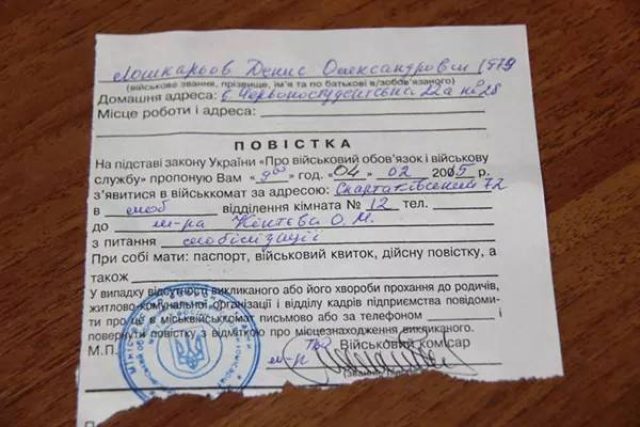 Лошкарьов Денис Олександрович 1979
(військове звання, прізвище, ім'я та по батькові в/зобов'язаного)
Домашня адреса: Червоностудентська 22а №28
Місце роботи і адреса:
ПОВІСТКА
На підставі закону України «Про військовий обов'язок і військову
службу» пропоную Вам «9⁰⁰» год. «04» 02 2005 р.
з'явитися в військкомат за адресою: 72
в моб відділення кімната № 12 тел.
до м-ра О. М.
з питання мобілізації
При собі мати: паспорт, військовий квиток, дійсну повістку, а
також
У випадку відсутності викликаного або його хвороби прохання до родичів,
житлово-комунальної організації і відділу кадрів підприємства повідоми-
ти про це в міськвійськкомат письмово або за телефоном і
повернути повістку з відміткою про місцезнаходження викликаного.
М.П. Військовий комісар
м-р